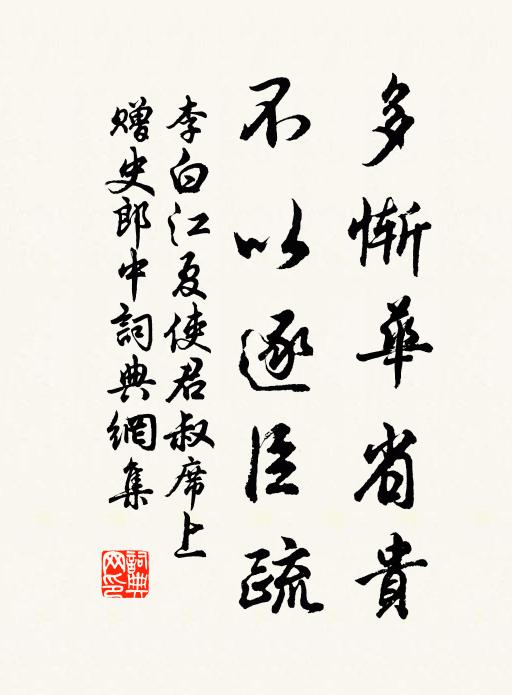 多慚華省貴
不以逐臣疏
李白江夏使君叔席上
贈史郎中詞典網集
詞典
网印